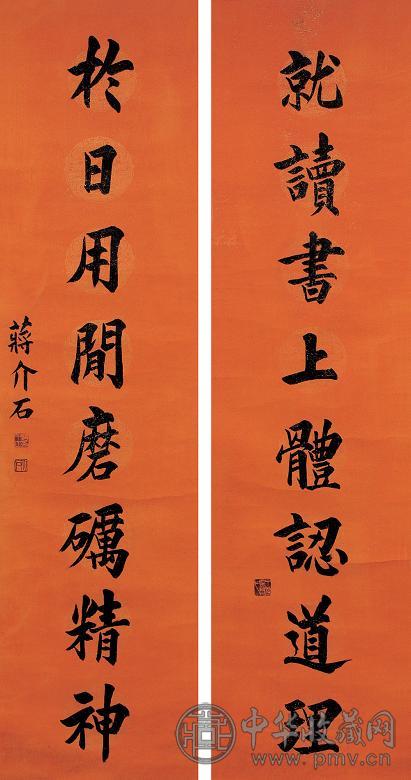 就讀書上體認道理
於日用閒磨礪精神
蔣介石
中华收藏网
www.pmv.cn